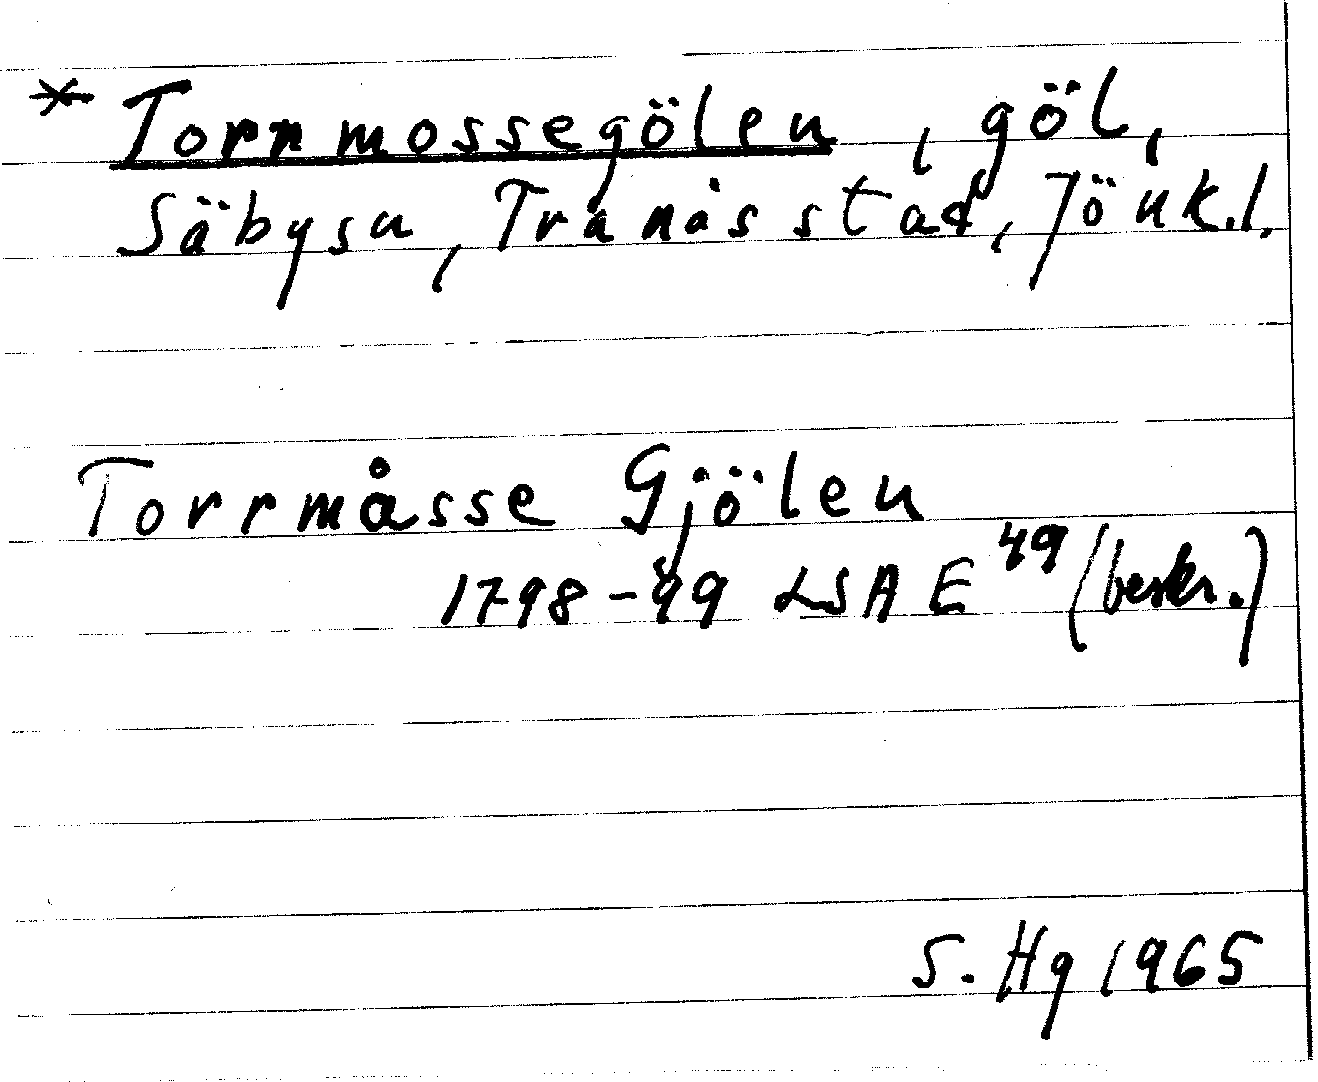 * Torrmossegölen, göl,
Säbysn, Tranås stad, Jönk.l.
Torrmåsse Gjölen
1798-99 LSA E 49 (beskr.)
S. Hg 1965